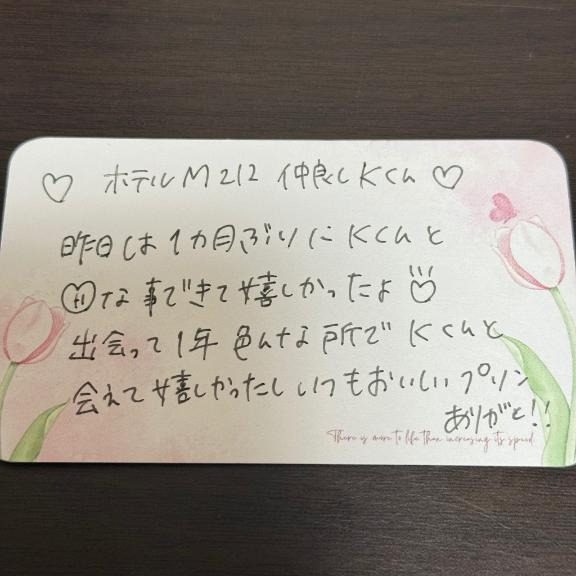 ♡ ホテルM212 仲良しKくん ♡
昨日は1カ月ぶりにKくんと
な事できて嬉しかったよ♡
出会って1年 色んな所でKくんと
会えて嬉しかったし いつもおいしいプリン
ありがと!!
There is more to life than increasing its speed